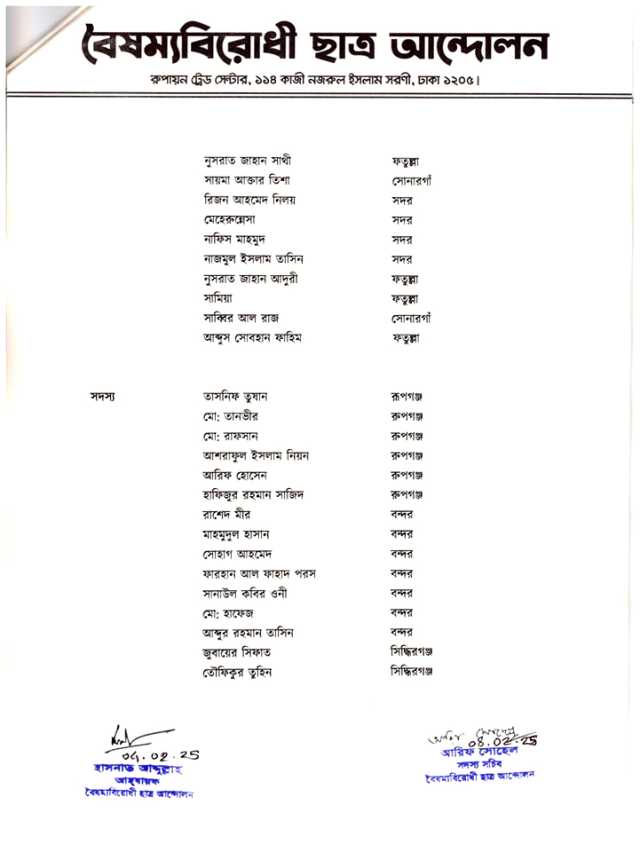 বৈষম্যবিরোধী ছাত্র আন্দোলন
রুপায়ন ট্রেড সেন্টার, ১১৪ কাজী নজরুল ইসলাম সরণী, ঢাকা ১২০৫।
নুসরাত জাহান সাথী ফতুল্লা
সায়মা আক্তার তিশা সোনারগাঁ
রিজন আহমেদ নিলয় সদর
মেহেরুন্নেসা সদর
নাফিস মাহমুদ সদর
নাজমুল ইসলাম তাসিন সদর
নুসরাত জাহান আদুরী ফতুল্লা
সামিয়া ফতুল্লা
সাব্বির আল রাজ সোনারগাঁ
আব্দুস সোবহান ফাহিম ফতুল্লা
সদস্য তাসনিফ তুষান রূপগঞ্জ
মো: তানভীর রুপগঞ্জ
মো: রাফসান রুপগঞ্জ
আশরাফুল ইসলাম নিয়ন রুপগঞ্জ
আরিফ হোসেন রুপগঞ্জ
হাফিজুর রহমান সাজিদ রুপগঞ্জ
রাশেদ মীর বন্দর
মাহমুদুল হাসান বন্দর
সোহাগ আহমেদ বন্দর
ফারহান আল ফাহাদ পরস বন্দর
সানাউল কবির ওনী বন্দর
মো: হাফেজ বন্দর
আব্দুর রহমান তাসিন বন্দর
জুবায়ের সিফাত সিদ্ধিরগঞ্জ
তৌফিকুর তুহিন সিদ্ধিরগঞ্জ
04.02.25
হাসনাত আব্দুল্লাহ
আহ্বায়ক
বৈষম্যবিরোধী ছাত্র আন্দোলন
04.02.25
আরিফ সোহেল
সদস্য সচিব
বৈষম্যবিরোধী ছাত্র আন্দোলন